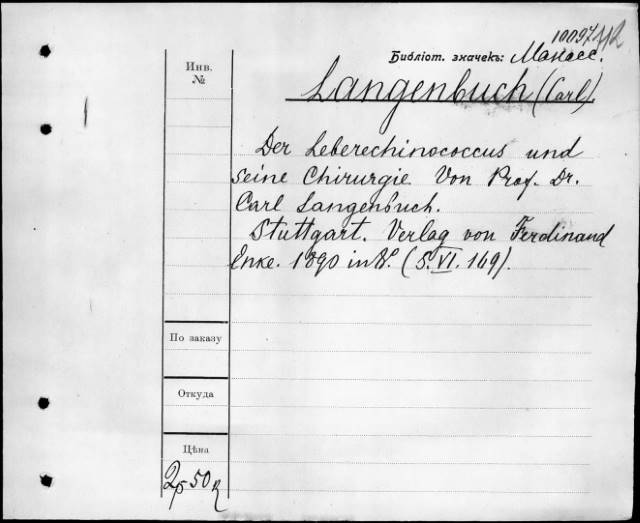 10097
Библіот. значекъ: Манасс.
Инв.
№
Langenbuch (Carl).
Der Leberechinococcus und
seine Chirurgie Von Prof. Dr.
Carl Langenbuch.
Stuttgart. Verlag von Ferdinand
Enke. 1890 in 8°. (S. VI. 149).
По заказу
Откуда
Цѣна
2р 50к